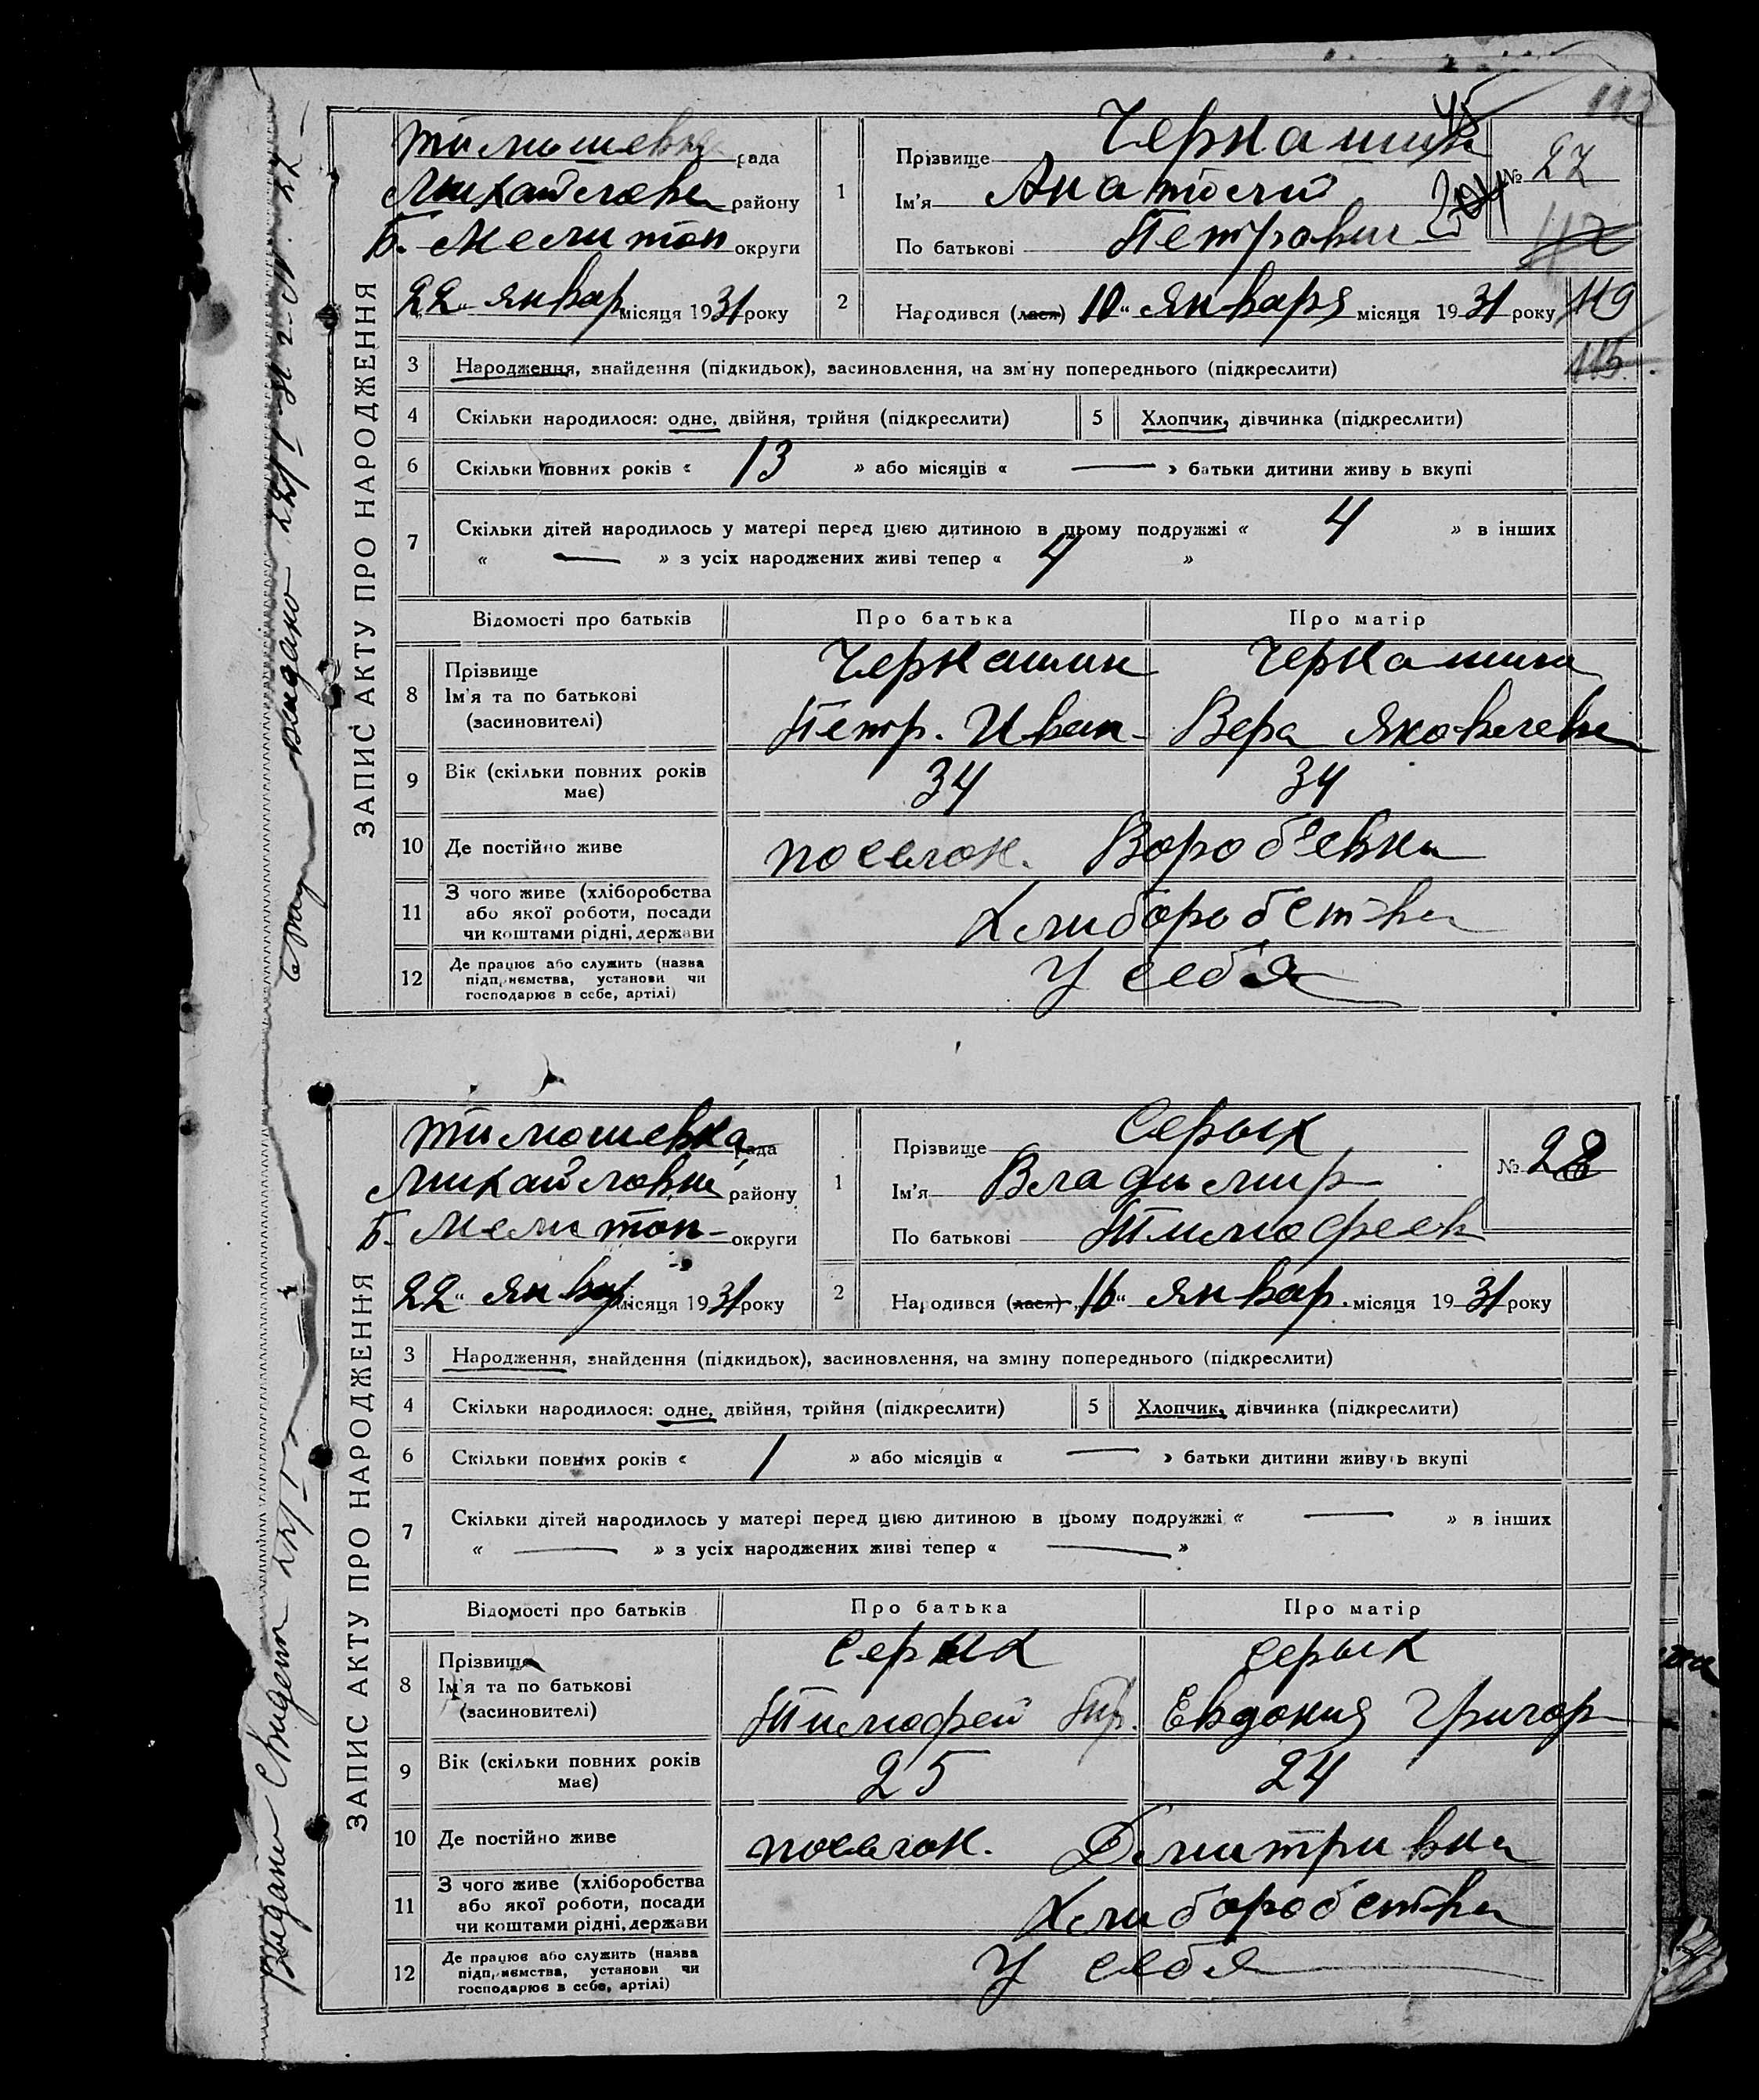 ЗАПИС АКТУ ПРО НАРОДЖЕННЯ
Тимошевка рада
Михайловск району
Б. Мелитоп округи
22 " январ місяця 1931 року
1 Прізвище Черкашин
Ім'я Анатолий
По батькові Петрович
№ 27
112
119
115
2 Народився (лася) 10 " января місяця 1931 року
3 Народження, знайдення (підкидьок), засиновлення, на зміну попереднього (підкреслити)
4 Скільки народилося: одне, двійня, трійня (підкреслити) 5 Хлопчик, дівчинка (підкреслити)
6 Скільки повних років « 13 » або місяців « — » батьки дитини живуть вкупі
7 Скільки дітей народилось у матері перед цією дитиною в цьому подружжі « 4 » в інших
« — » з усіх народжених живі тепер « 4 »
Відомості про батьків Про батька Про матір
8 Прізвище Черкашин Черкашина
Ім'я та по батькові Петр. Иван- Вера Яковлевн
(засиновителі)
9 Вік (скільки повних років має) 34 34
10 Де постійно живе поселок. Вороб'евка
11 З чого живе (хліборобства або якої роботи, посади чи коштами рідні, держави Хлиборобства
12 Де працює або служить (назва підприємства, установи чи господарює в себе, артілі) У себя
ЗАПИС АКТУ ПРО НАРОДЖЕННЯ
Тимошевка рада
Михайловск району
Б. Мелитоп- округи
22 " январ місяця 1931 року
1 Прізвище Серых
Ім'я Владимир
По батькові Тимофеев
№ 28
2 Народився (лася) 16 " январ. місяця 1931 року
3 Народження, знайдення (підкидьок), засиновлення, на зміну попереднього (підкреслити)
4 Скільки народилося: одне, двійня, трійня (підкреслити) 5 Хлопчик, дівчинка (підкреслити)
6 Скільки повних років « 1 » або місяців « — » батьки дитини живуть вкупі
7 Скільки дітей народилось у матері перед цією дитиною в цьому подружжі « — » в інших
« — » з усіх народжених живі тепер « — »
Відомості про батьків Про батька Про матір
8 Прізвище Серых Серых
Ім'я та по батькові Тимофей Евдокия Григор-
(засиновителі)
9 Вік (скільки повних років має) 25 24
10 Де постійно живе поселок. Дмитривка
11 З чого живе (хліборобства або якої роботи, посади чи коштами рідні, держави Хлиборобства
12 Де працює або служить (назва підприємства, установи чи господарює в себе, артілі) У себя